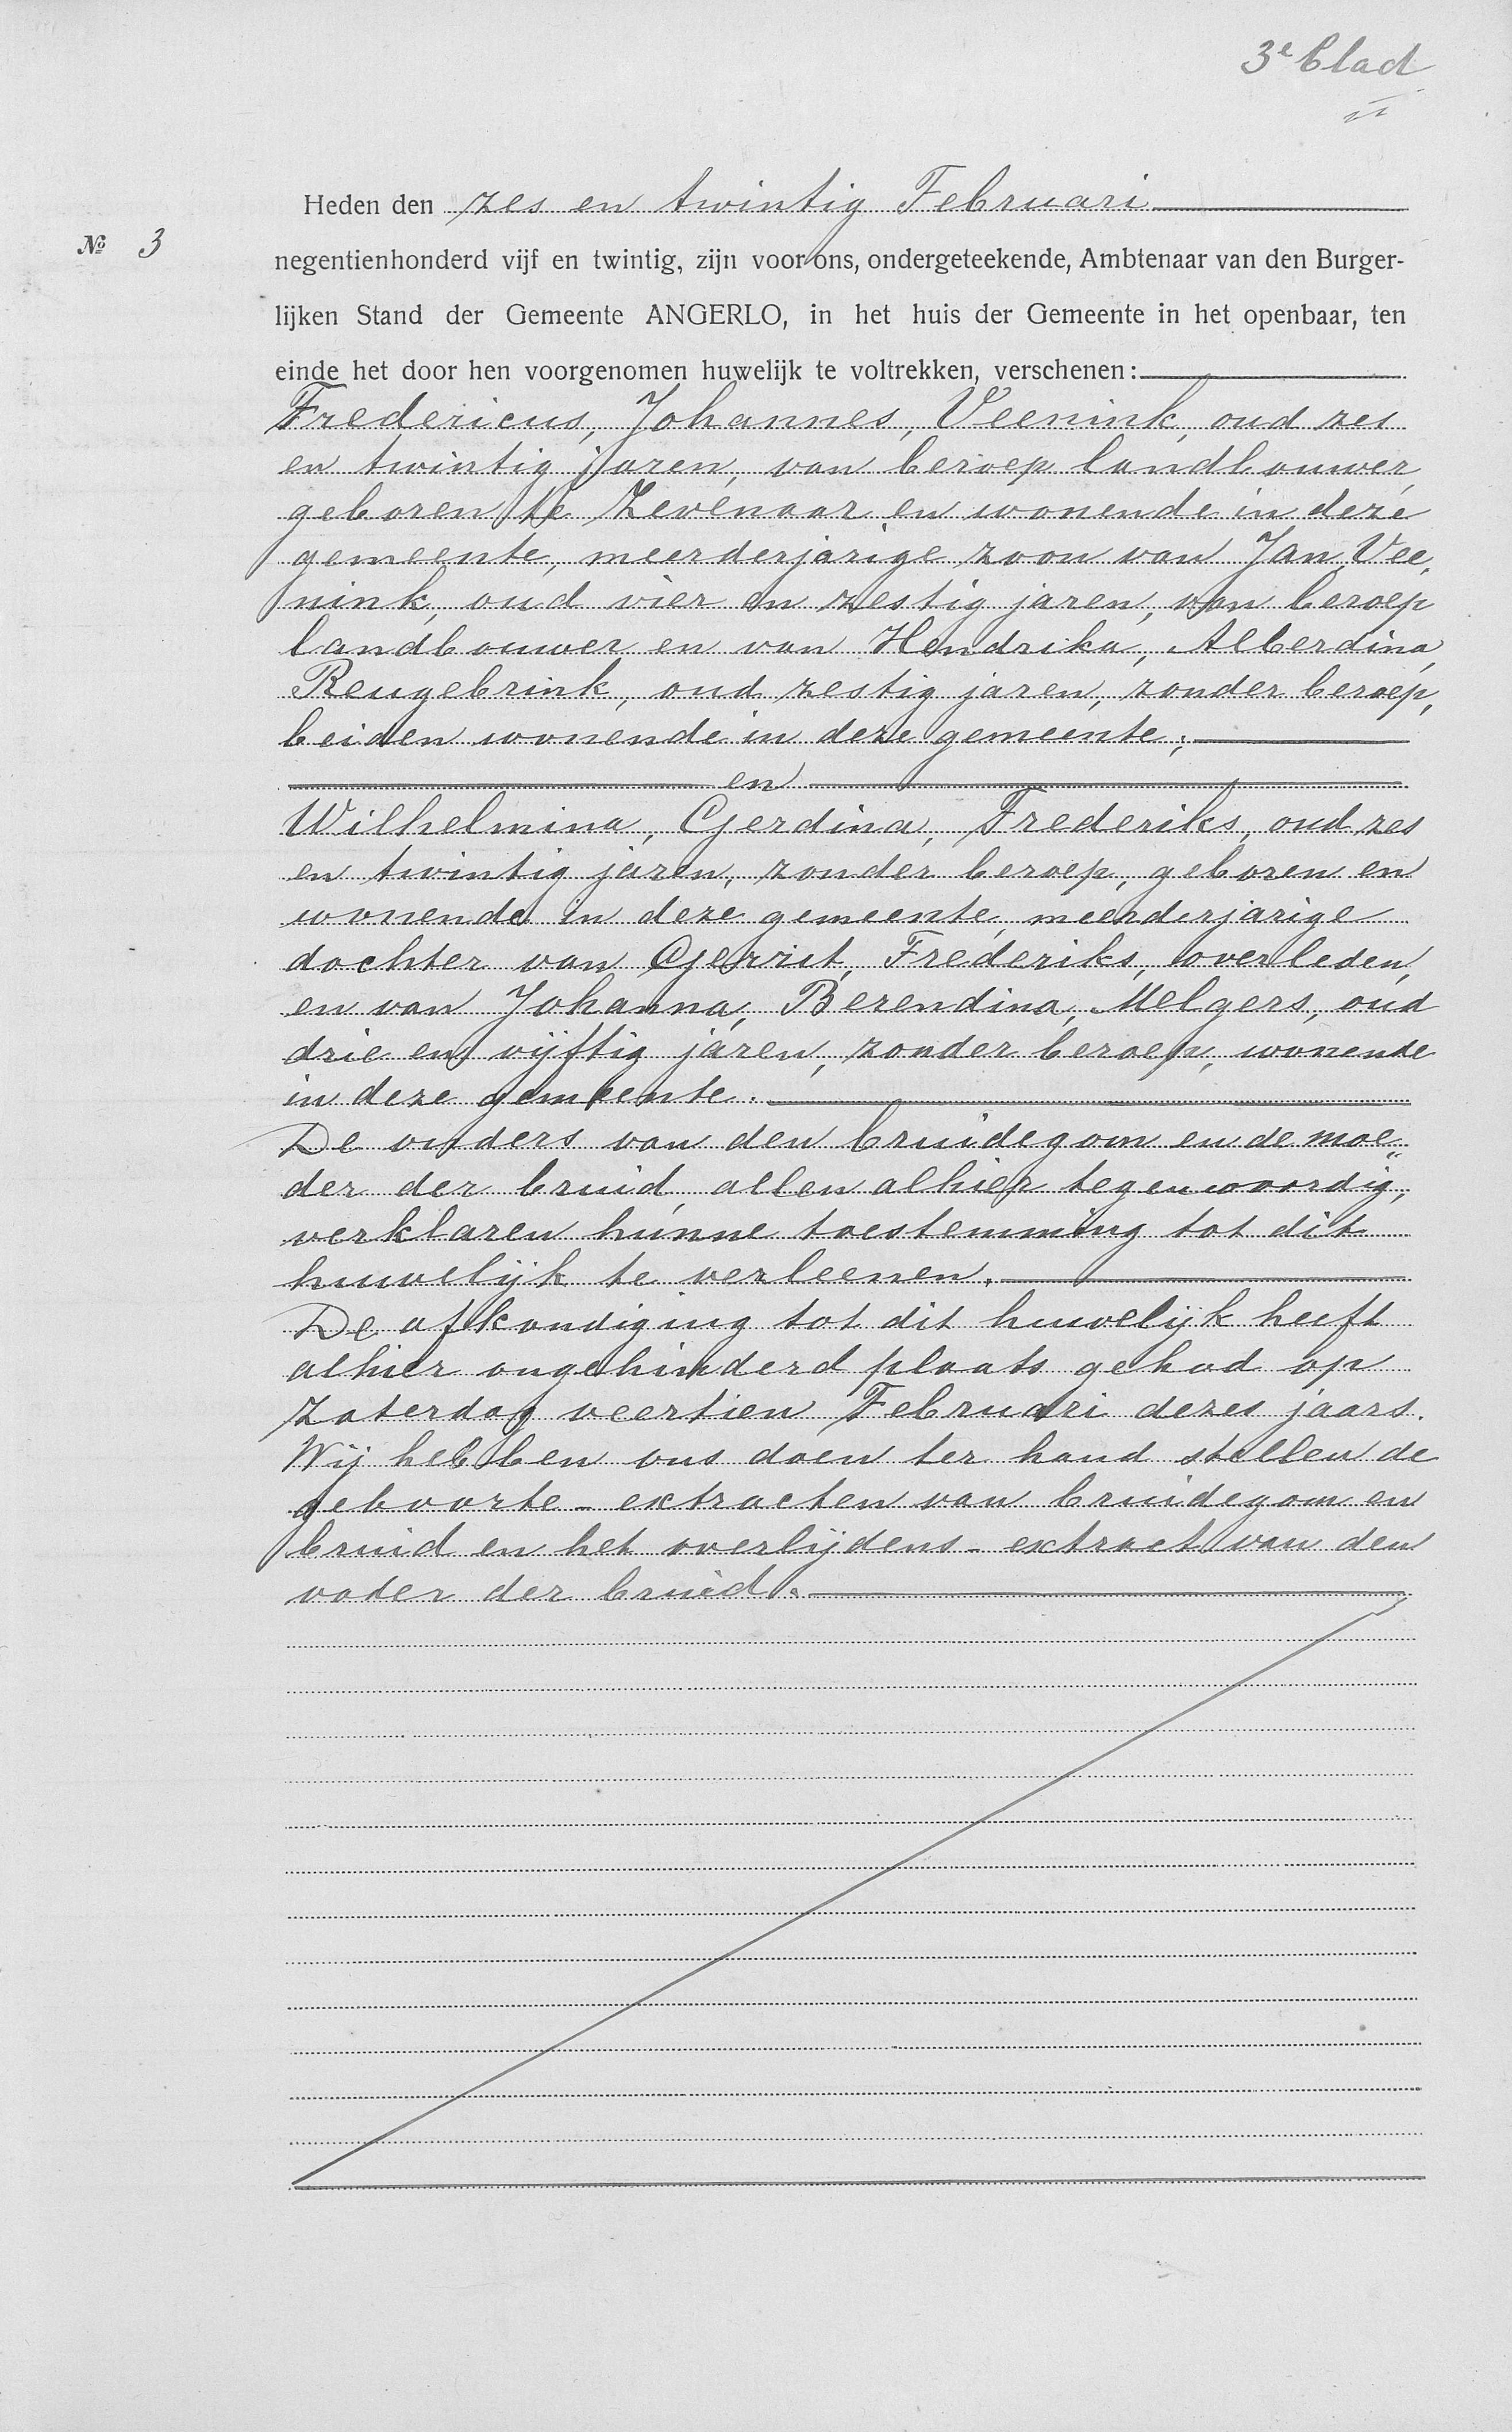 3e blad
Heden den zes en twintig Februari
№ 3
negentienhonderd vijf en twintig, zijn voor ons, ondergeteekende, Ambtenaar van den Burger-
lijken Stand der Gemeente ANGERLO, in het huis der Gemeente in het openbaar, ten
einde het door hen voorgenomen huwelijk te voltrekken, verschenen:
Fredericus, Johannes, Veenink, oud zes
en twintig jaren, van beroep landbouwer,
geboren te Zevenaar en wonende in deze
gemeente, meerderjarige zoon van Jan, Vee„
nink, oud vier en zestig jaren, van beroep
landbouwer en van Hendrika, Alberdina,
Reugebrink, oud zestig jaren, zonder beroep,
beiden wonende in deze gemeente;
en
Wilhelmina, Gerdina, Frederiks, oud zes
en twintig jaren, zonder beroep, geboren en
wonende in deze gemeente, meerderjarige
dochter van Gerrit, Frederiks, overleden,
en van Johanna, Berendina, Melgers, oud
drie en vijftig jaren, zonder beroep, wonende
in deze gemeente.
De ouders van den bruidegom en de moe„
der der bruid, allen alhier tegenwoordig,
verklaren hunne toestemming tot dit
huwelijk te verleenen.
De afkondiging tot dit huwelijk heeft
alhier ongehinderd plaats gehad op
Zaterdag veertien Februari dezes jaars.
Wij hebben ons doen ter hand stellen de
geboorte-extracten van bruidegom en
bruid en het overlijdens-extract van den
vader der bruid.